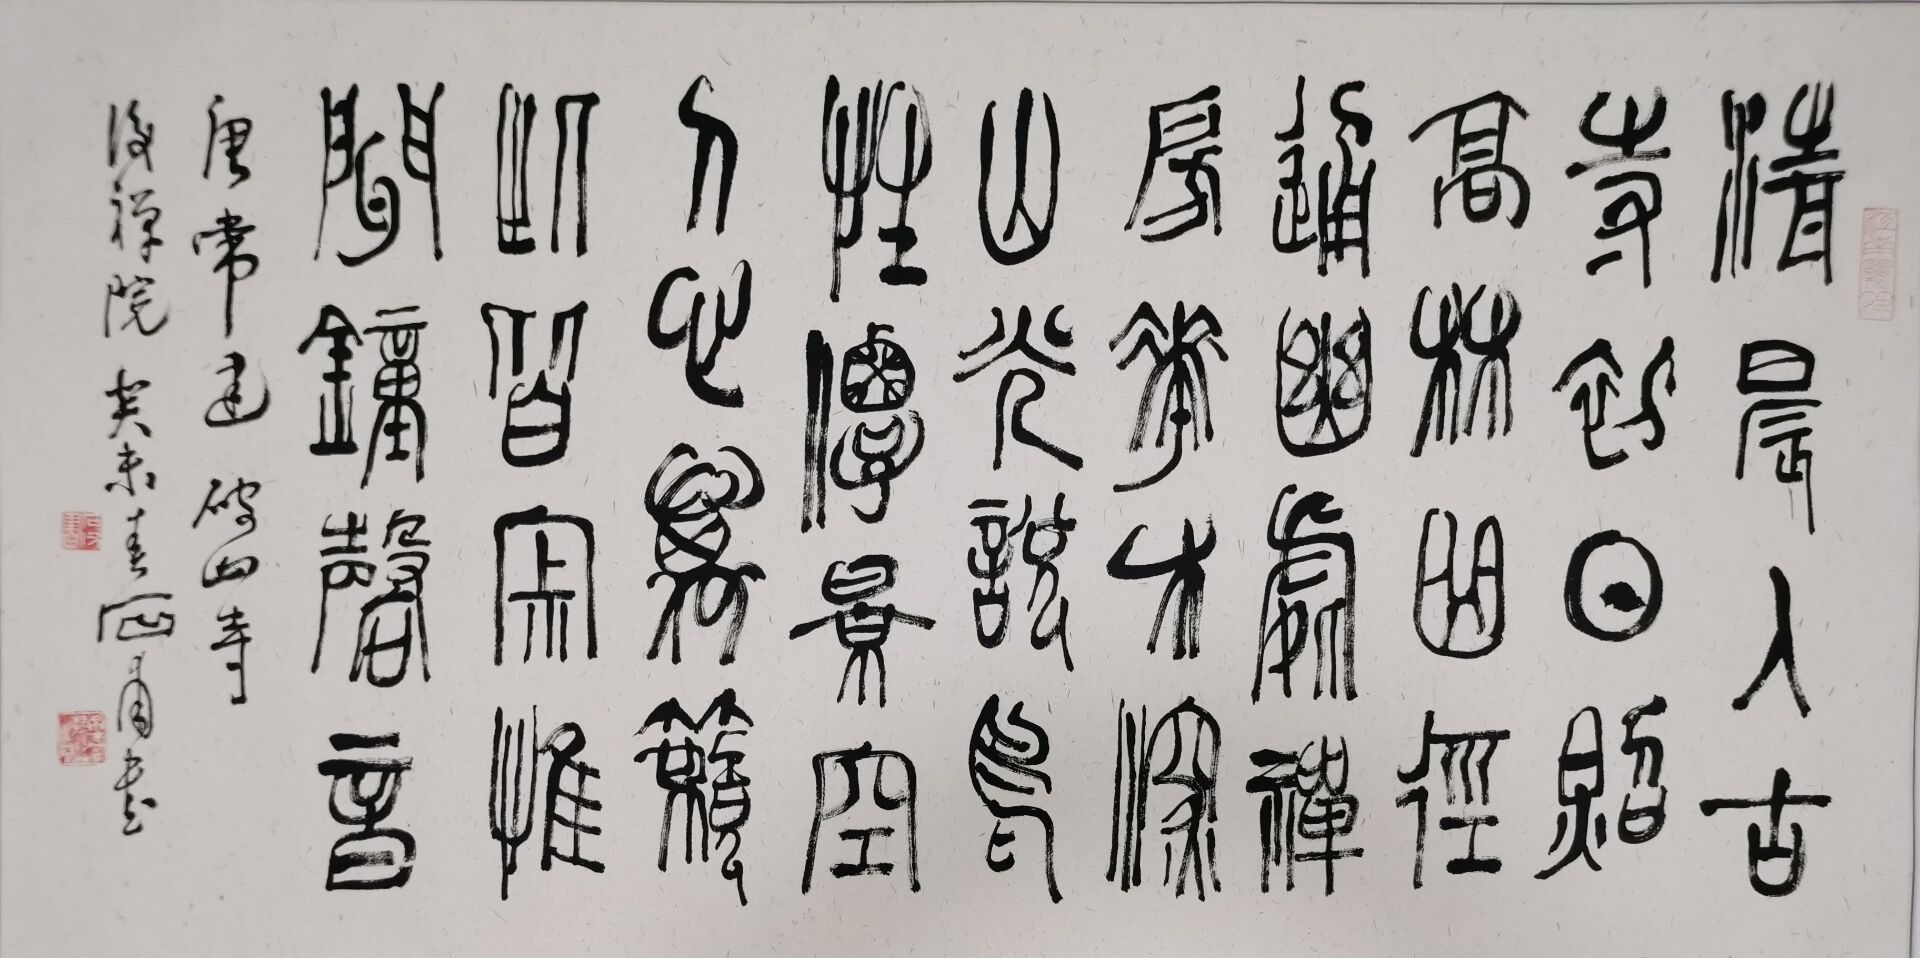 清晨入古
寺初日照
高林曲徑
通幽處禪
房華木深
山光說鳥
性潭景空
人心萬籟
此皆寂惟
聞鐘磬音
唐常建破山寺
後禪院 癸未春 甫書